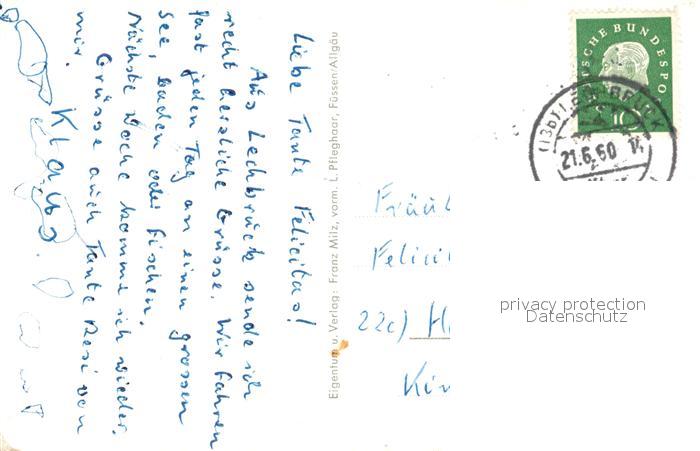 Liebe Tante Felicitas!
Aus Lechbruck sende ich
recht herzliche Grüsse. Wir fahren
fast jeden Tag an einen grossen
See, baden oder fischen.
Nächste Woche komme ich wieder.
Grüsse auch Tante Resi von
mir.
Klaus
Eigentum u. Verlag: Franz Milz, vorm. L. Pfleghaar, Füssen/Allgäu
DEUTSCHE BUNDESPO
10
(13b) LECHBRUCK
21.6.60
Fräul
Felici
22c) H
privacy protection
Datenschutz